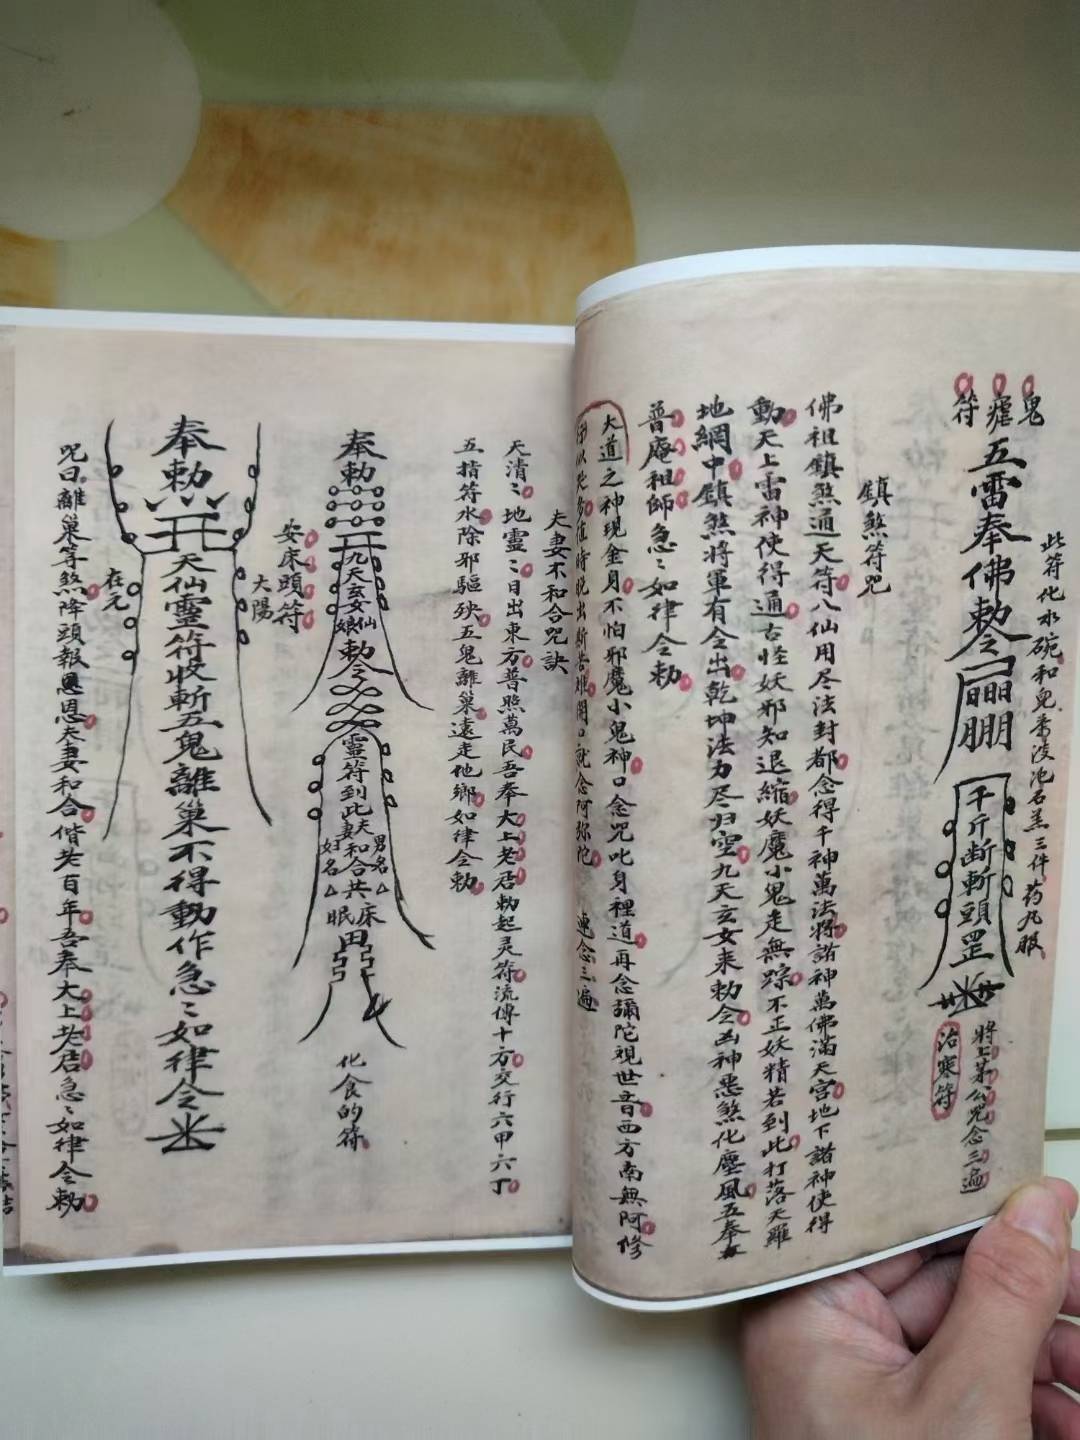 鬼瘧符
此符化水碗和兒茶沒沌石羔三件药丸服
五雷奉佛勅令
千斤断斬頭罡
將上茅公咒念三遍
治寒符
鎮煞符咒
佛祖鎮煞通天符八仙用尽法封都念得千神萬法將諸神萬佛滿天宮地下諸神使得
動天上雷神使得通古怪妖邪知退縮妖魔小鬼走無踪不正妖精若到此打落天羅
地網中鎮煞將軍有令出乾坤法力尽归空九天玄女来勅令凶神恶煞化塵風五奉
普庵祖師急〻如律令勅
大道之神現金身不怕邪魔小鬼神口念咒叱身裡道再念彌陀視世音西方南無阿修
開口就念阿弥陀
連念三遍
夫妻不和合咒訣
天清〻地靈〻日出東方普照萬民吾奉大上老君勅起灵符流傳十方交行六甲六丁
五指符水除邪驅殃五鬼離巢遠走他鄉如律令勅
奉勅
九天玄女娘仙
勅令
靈符到此夫妻和合共床眠
男名△
好名△
化食的符
安床頭符
奉勅
天仙靈符收斬五鬼離巢不得動作急〻如律令
大陽
在元
咒曰離巢等煞降頭報恩恩夫妻和合偕老百年吾奉大上老君急〻如律令勅